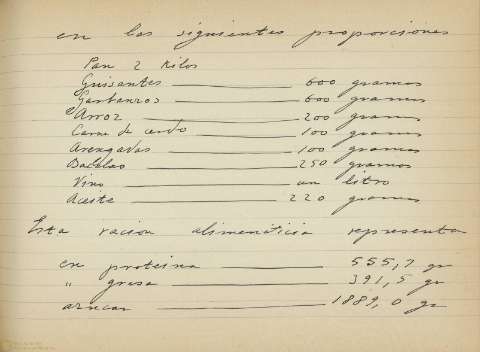 en las siguientes proporciones
Pan 2 kilos
Guisantes 600 gramos
Garbanzos 600 gramos
Arroz 200 gramos
Carne de cerdo 100 gramos
Arengadas 100 gramos
Bacalao 250 gramos
Vino un litro
Aceite 220 gramos
Esta racion alimenticia representa
en proteina 555,7 gr
" grasa 391,5 gr
azucar 1889,0 gr